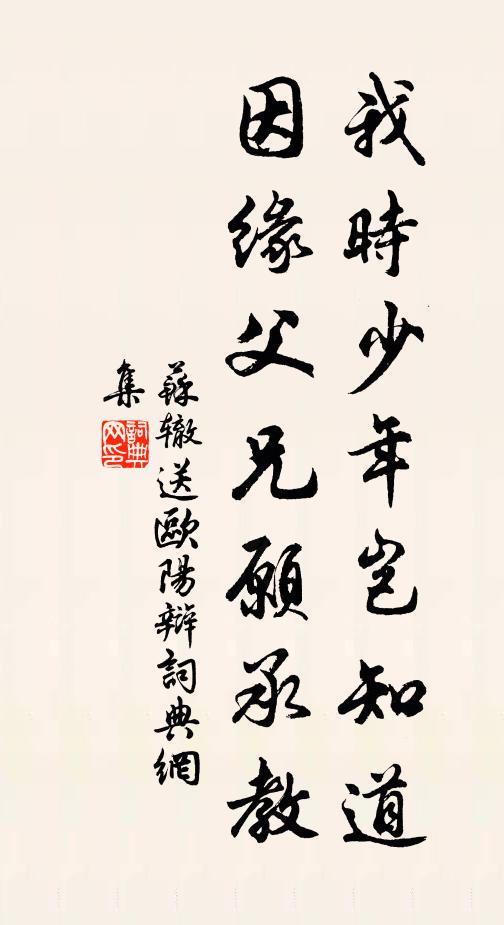 我時少年豈知道
因緣父兄願承教
蘇轍送歐陽辯詞典網
集
詞典网印